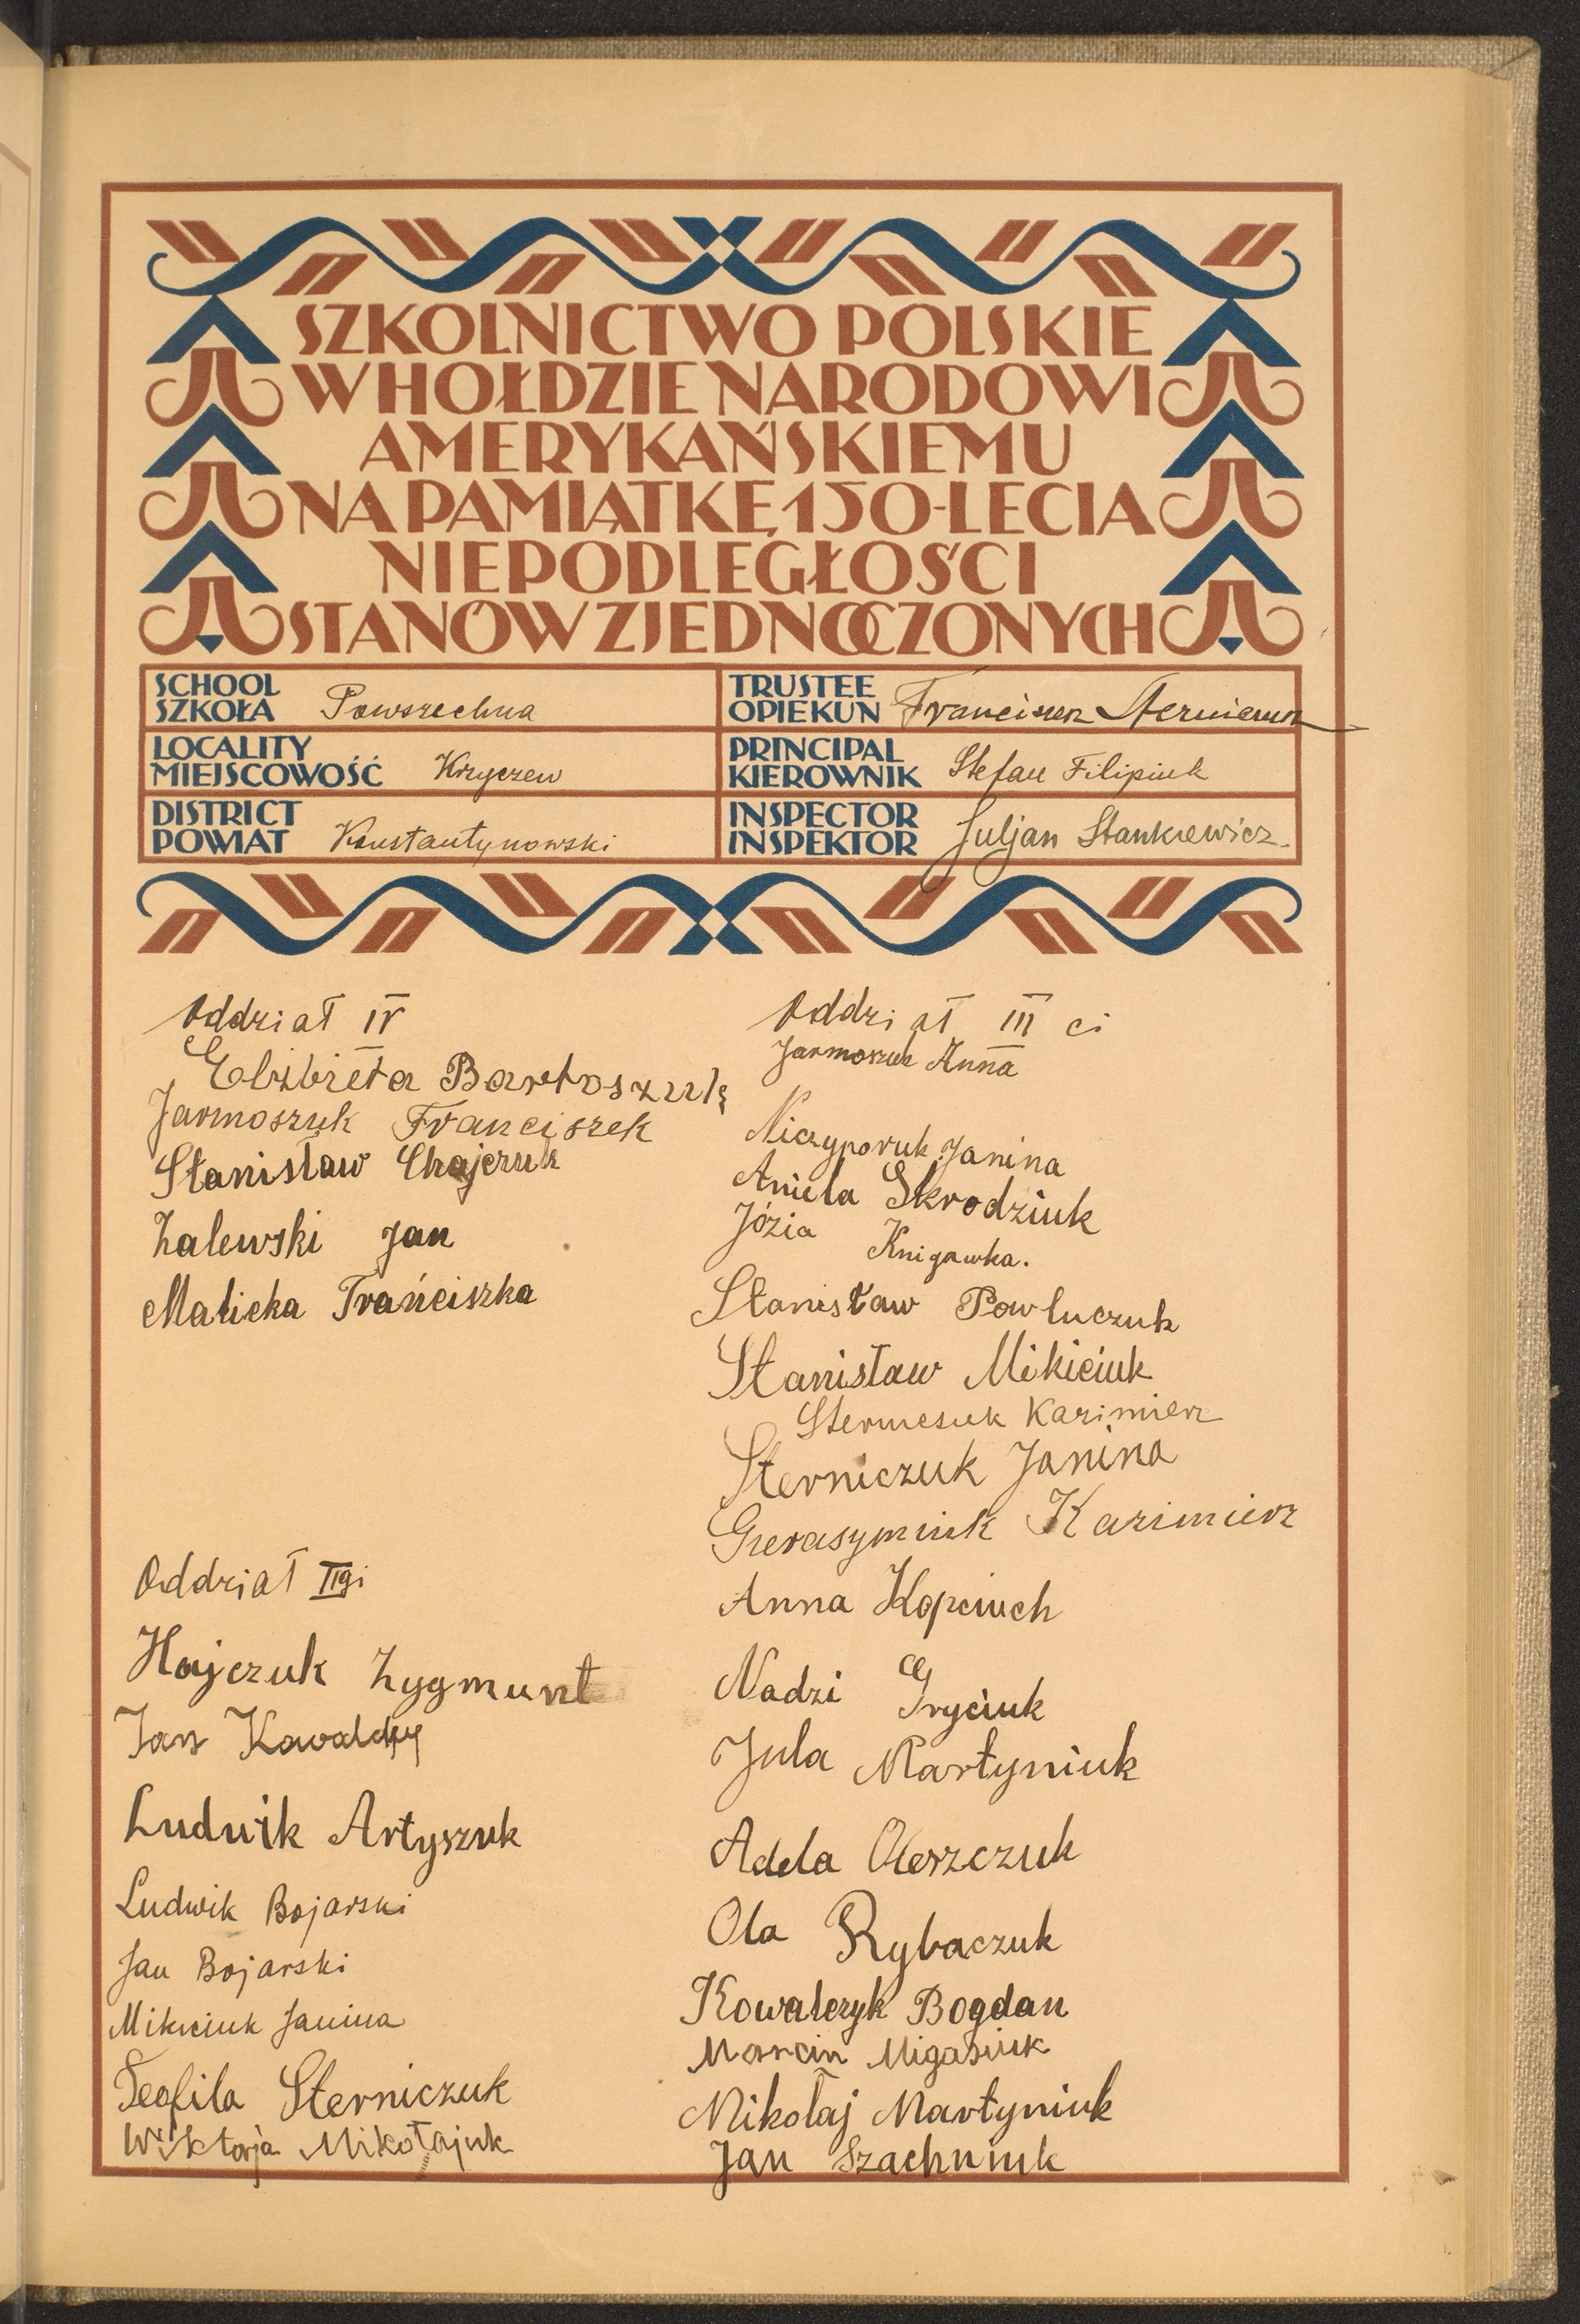 SZKOLNICTWO POLSKIE
W HOŁDZIE NARODOWI
AMERYKAŃSKIEMU
NA PAMIĄTKĘ 150-LECIA
NIEPODLEGŁOŚCI
STANÓW ZJEDNOCZONYCH
SCHOOL
SZKOŁA Powszechna
TRUSTEE
OPIEKUN Franciszek
LOCALITY
MIEJSCOWOŚĆ Krzyczew
PRINCIPAL
KIEROWNIK Stefan Filipiuk
DISTRICT
POWIAT Konstantynowski
INSPECTOR
INSPEKTOR Juljan Stankiewicz.
Oddział IV
Elżbieta Bartoszuk
Jarmoszuk Franciszek
Stanisław Chajczuk
Zalewski Jan
Malicka Frańciszka
Oddział IIgi
Hajczuk Zygmunt
Jan
Ludwik Artyszuk
Ludwik Bojarski
Jan Bojarski
Mikiciuk Janina
Teofila Sterniczuk
Wiktorja Mikołajuk
Oddział III ci
Jarmoszuk Anna
Niczyporuk Janina
Aniela Skrodziuk
Józia Knigawka.
Stanisław Powluczuk
Stanisław Mikiciuk
Kazimierz
Sterniczuk Janina
Gierasymiuk Kazimierz
Anna Kopciuch
Nadzi Gryciuk
Jula Martyniuk
Adela Oleszczuk
Ola Rybaczuk
Kowalczyk Bogdan
Marcin Migasiuk
Mikołaj Martyniuk
Jan Szachniuk